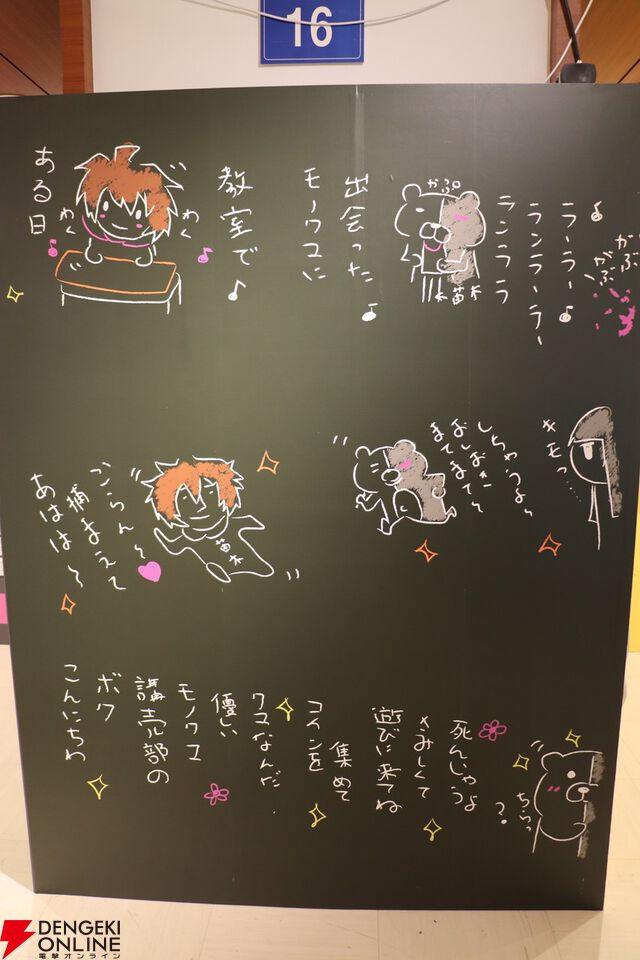 16
ある日
わく
わく
教室で♪
モノクマに
出会った♪
かぷ。
苗木
ランラララ
ランランラーラー♪
ラーラー♪
がぶ
がぶ
あはは〜
捕まえて
ごらん〜
苗木
まてまて〜
おしおき
しちゃうよ〜
キモっ……
こんにちわ
ボク
講売部の
モノクマ
優しい
クマなんだ
コインを
集めて
遊びに来てね
さみしくて
死んじゃうよ
?
ちらっ
DENGEKI
ONLINE
電撃オンライン